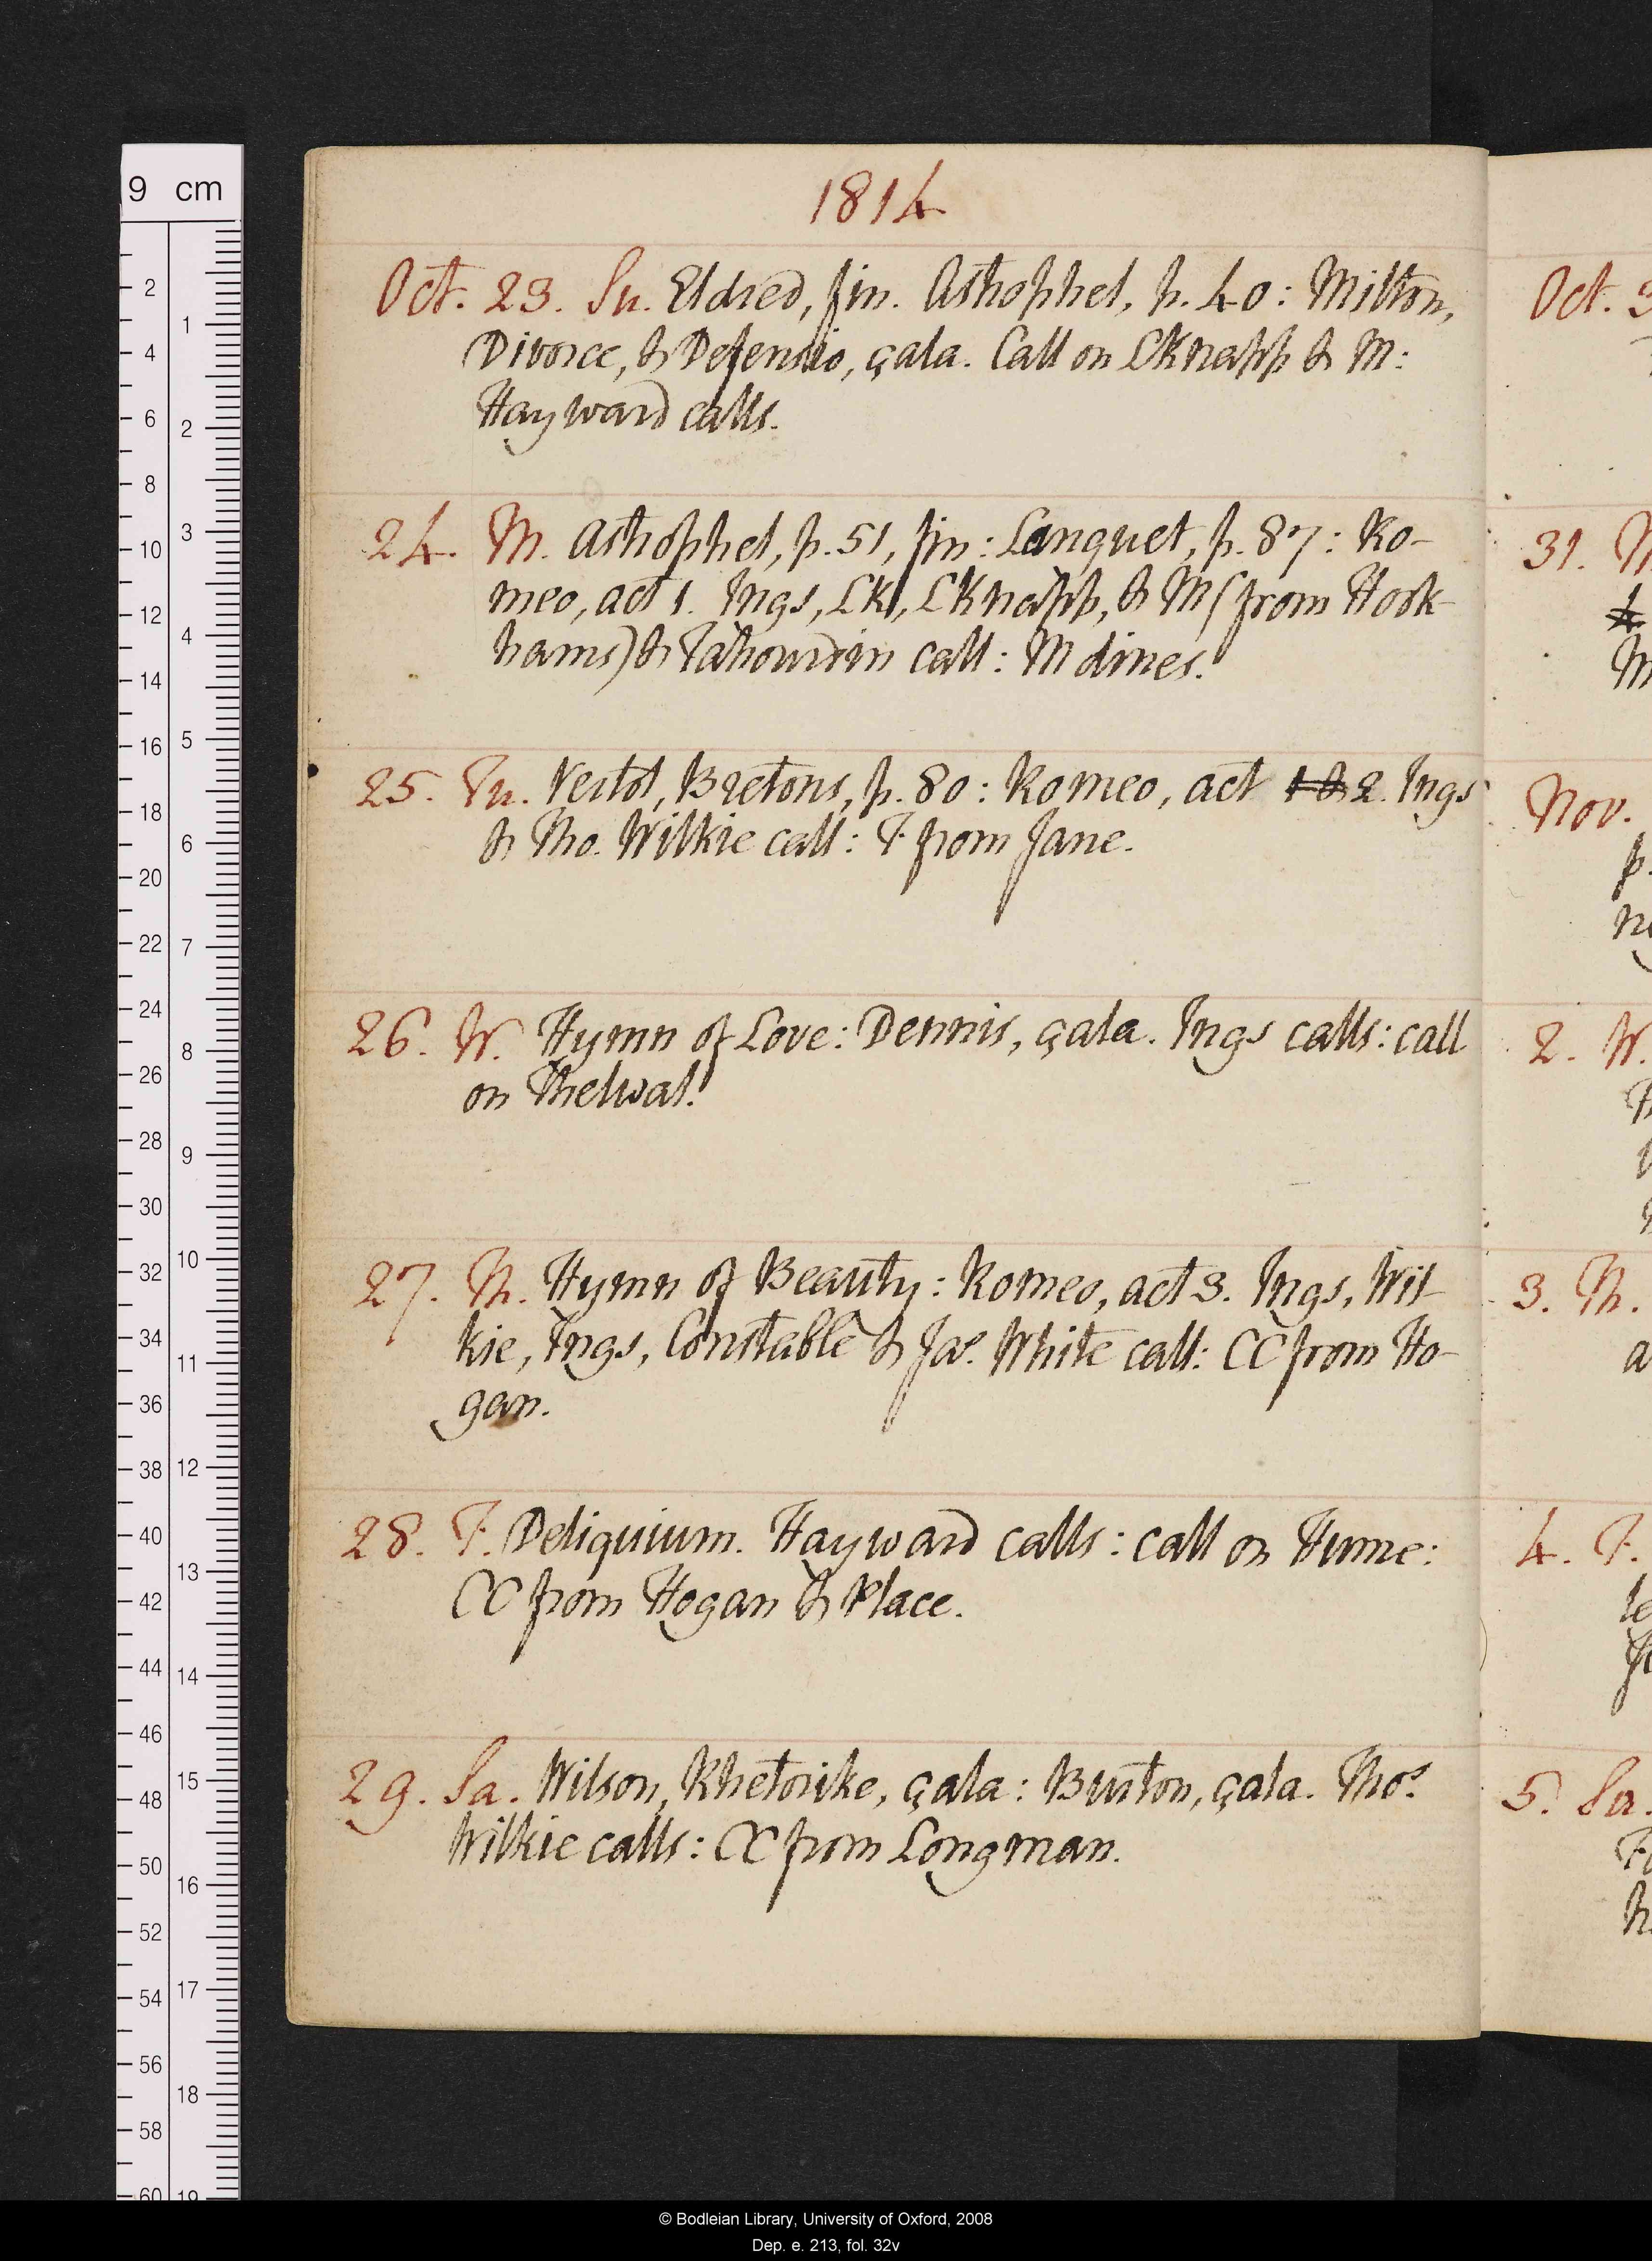 1814
Oct. 23. Su. Eldred, fin. Astrophel, p. 40: Milton,
Divorce, & Defensio, çala. Call on LKnapp & M:
Hayward calls.
24. M. Astrophel, p. 51, fin: Languet, p. 87: Ro-
meo, act 1. Ings, LK, LKnapp, & M (from Hook-
hams) & Tahourdin call: M dines.
25. Tu. Vertot, Bretons, p. 80: Romeo, act 1 & 2. Ings
& Tho. Wilkie call: T. from Jane.
26. W. Hymn of Love: Dennis, çala. Ings calls: call
on Thelwal.
27. Th. Hymn of Beauty: Romeo, act 3. Ings, Wil-
kie, Ings, Constable & Jas. White call: CC from Ho-
gan.
28. F. Deliquium. Hayward calls: call on Hume:
CC from Hogan & Place.
29. Sa. Wilson, Rhetorike, çala: Burton, çala. Thos.
Wilkie calls: CC from Longman.
Oct.
31.
Nov.
p.
2. W.
3. Th.
4. F.
5. Sa.
9 cm
2
4
6
8
10
12
14
16
18
20
22
24
26
28
30
32
34
36
38
40
42
44
46
48
50
52
54
56
58
60
1
2
3
4
5
6
7
8
9
10
11
12
13
14
15
16
17
18
19
© Bodleian Library, University of Oxford, 2008
Dep. e. 213, fol. 32v